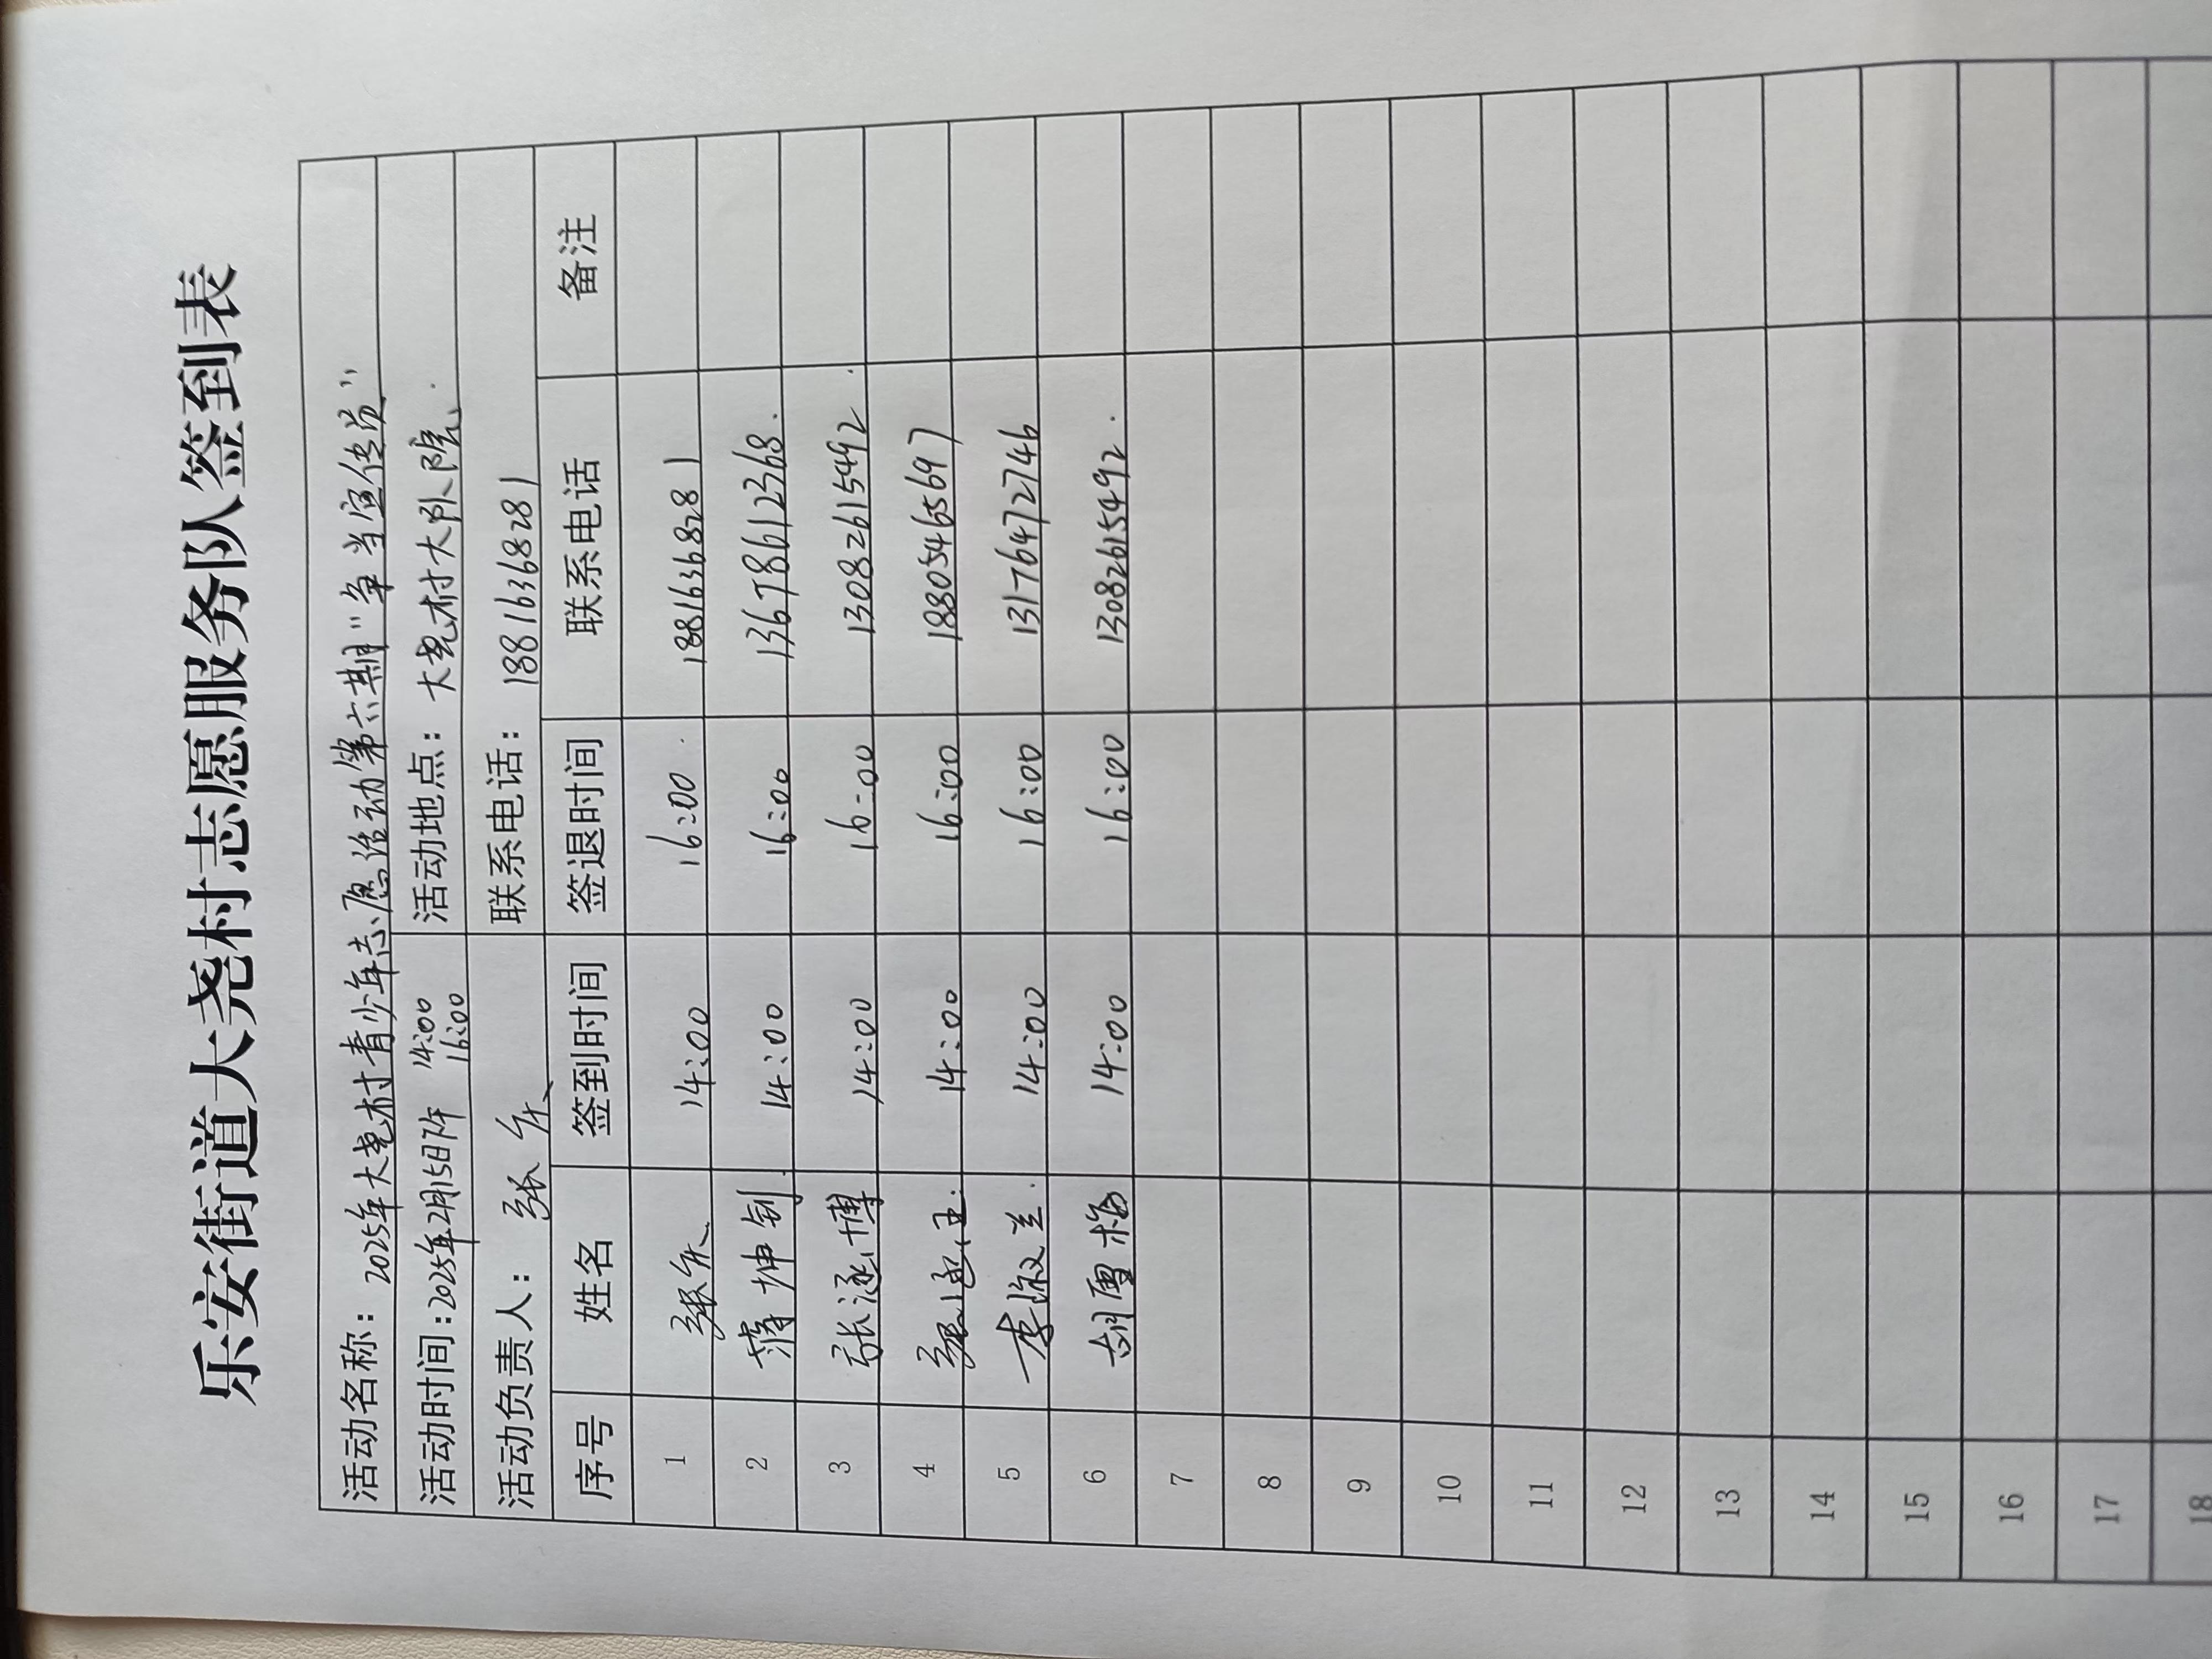 乐安街道大尧村志愿服务队签到表
活动名称：2025年大尧村青少年志愿活动第六期"争当宣传员"
活动时间：2025年2月15日下午 14:00 16:00 活动地点：大尧村大队院
活动负责人：张 联系电话：18816368281
序号 姓名 签到时间 签退时间 联系电话 备注
1 张 14:00 16:00 18816368281
2 薄坤钊 14:00 16:00 13678612368
3 张涵博 14:00 16:00 13082615492
4 14:00 16:00 18805465697
5 李淑兰 14:00 16:00 13176472746
6 胡雪梅 14:00 16:00 13082615492
7
8
9
10
11
12
13
14
15
16
17
18